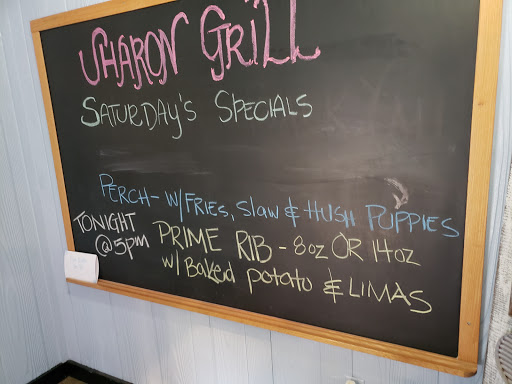 SHARON GRILL
SATURDAY'S SPECIALS
PERCH- W/FRIES, Slaw & HUSH PUPPIES
TONIGHT @5pm
PRIME RIB - 8oz OR 14oz
w/ Baked potato & LIMAS